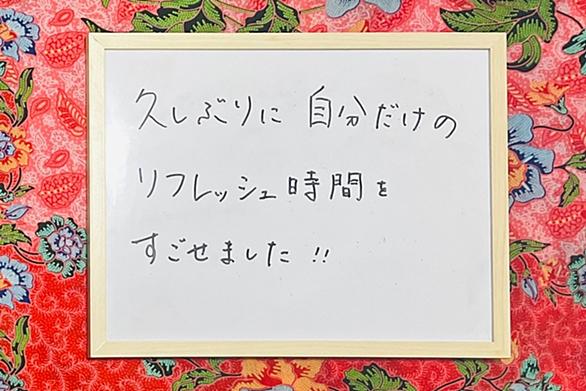 久しぶりに 自分だけの
リフレッシュ時間を
すごせました!!